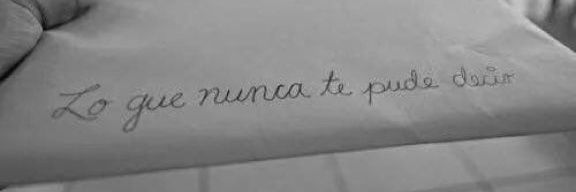 Lo que nunca te pude decir